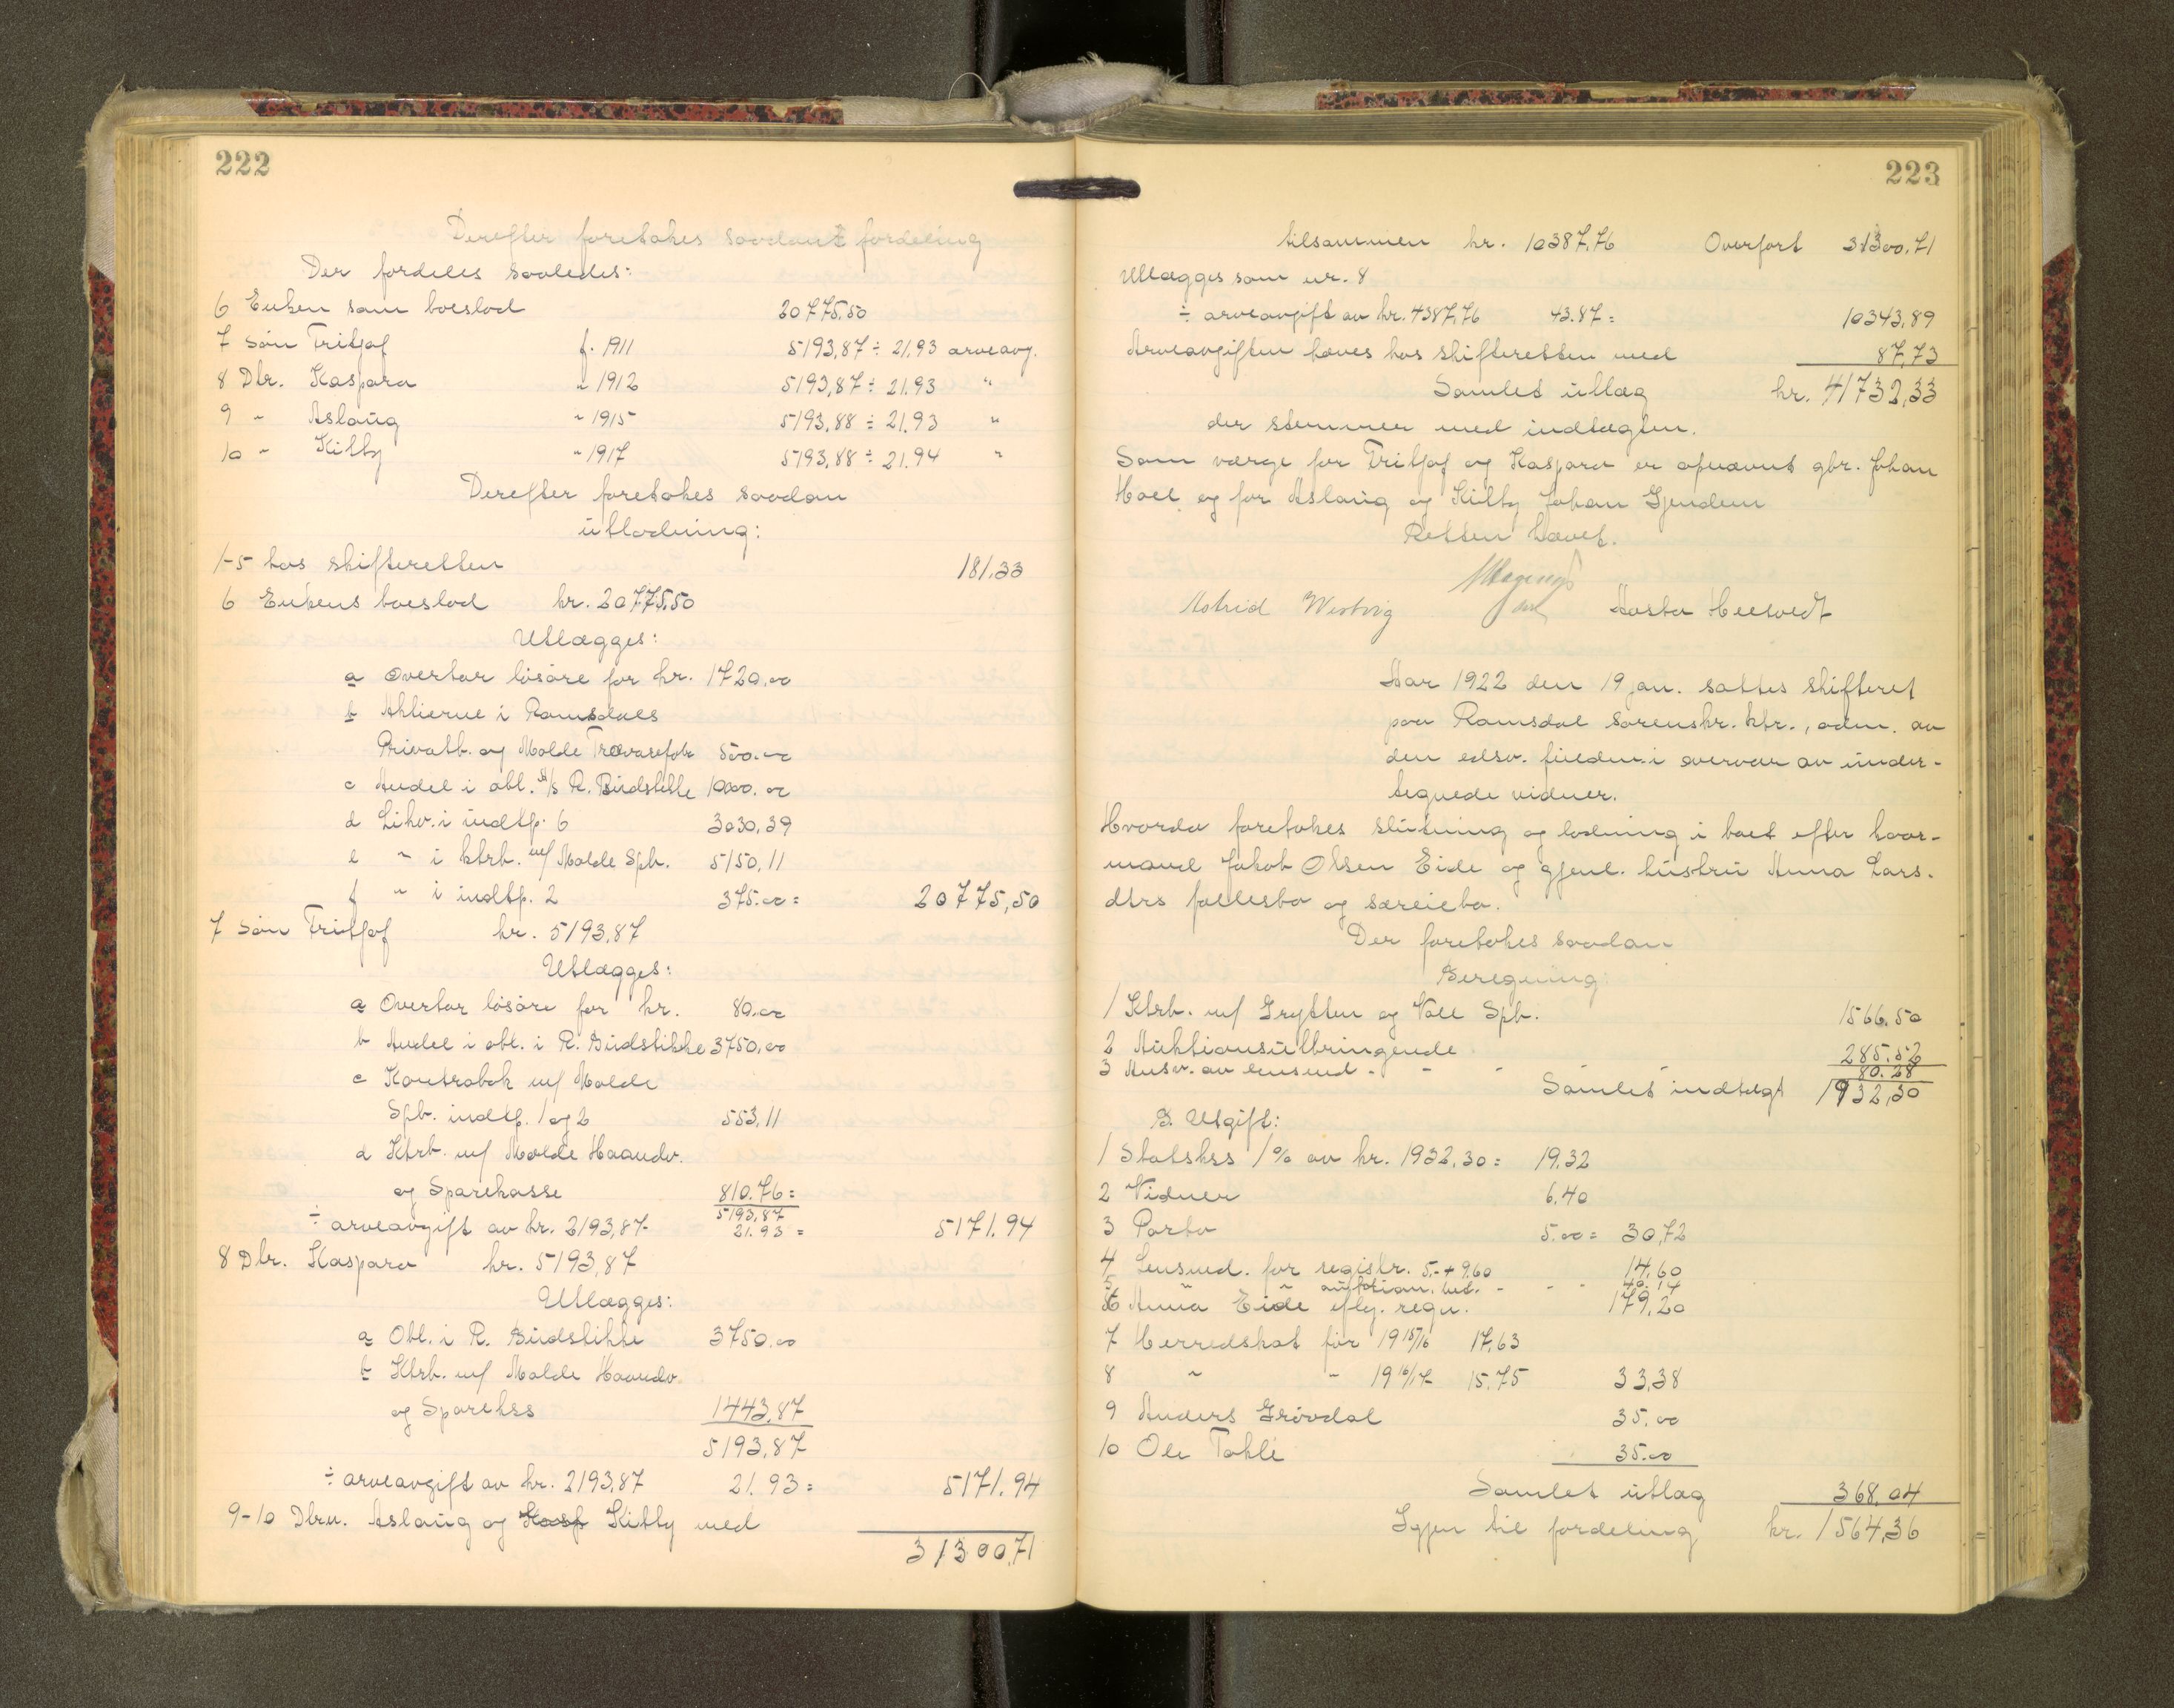 222
Derefter foretakes saadant fordeling
Der fordeles saaledes:
6 Enken som boeslod 20775.50
7 Søn Fritjof f. 1911 5193,87 ÷ 21,93 arveavg.
8 Dtr. Kaspara " 1912 5193,87 ÷ 21.93 "
9 " Aslaug " 1915 5193.88 ÷ 21.93 "
10 " Kitty " 1917 5193.88 ÷ 21.94 "
Derefter foretakes saadan
utlodning:
1-5 hos skifteretten 181,33
6 Enkens boeslod kr. 20775.50
Utlægges:
a Overtar løsøre for kr. 1720.00
b Aktierne i Romsdals
Privatb. og Molde Trævarefabr 500.00
c Andel i obl. A/s R. Budstikke 10000.00
d Likv. i indtp. 6 3030,39
e " i ktrb. m/ Molde Spb. 5150,11
f " i indtp. 2 375.00 = 20775,50
7 Søn Fritjof kr. 5193.87
Utlægges:
a Overtar løsøre for kr. 80.00
b Andel i obl. i R. Budstikke 3750,00
c Kontrabok m/ Molde
Spb. indtp. 1 og 2 553,11
d Ktrb. m/ Molde Haandv.
og Sparekasse 810.76 =
5193,87
÷ arveavgift av kr. 2193,87 21.93 = 5171.94
8 Dtr. Kaspara kr. 5193,87
Utlægges:
a Obl. i R. Budstikke 3750.00
b Ktrb. m/ Molde Haandv.
og Sparekss 1443,87
5193,87
÷ arveavgift av kr. 2193,87 21.93 = 5171.94
9-10 Dtrn. Aslaug og Kasp Kitty med
31300,71
223
tilsammen kr. 10387,76 Overført 31300,71
Utlægges som nr. 8
÷ arveavgift av kr. 4387,76 43.87 = 10343,89
Arveavgiften hæves hos skifteretten med 87,73
Samlet utlæg kr. 41732,33
der stemmer med indtægten.
Som værge for Fritjof og Kaspara er opnævnt gbr. Johan
Hoel og for Aslaug og Kitty Johan Gjendem
Retten hævet.
Astrid Westvig
Aar 1922 den 19 jan. sattes skifteret
paa Romsdal sorenskr. ktr., adm. av
den edsv. fuldm. i overvær av under-
tegnede vidner.
Hvorda foretokes slutning og lodning i boet efter kaar-
mand Jakob Olsen Eide og gjenl. hustru Anna Lars-
dtrs fællesbo og særeiebo.
Der foretokes saadan
Beregning:
1 Ktrb. m/ Grytten og Voll Spb. 1566.50
2 Auktionsutbringende 285.52
3 Ansv. av lensmd - - - - 80.28
Samlet indtægt 1932,30
B. Utgift:
1 Statskss 1% av kr. 1932,30 = 19,32
2 Vidner 6.40
3 Porto 5.00 = 30,72
4 Lensmd. for registr. 5.- + 9.60 14,60
5 " " auktion. - - - 40.14
6 Anna Eide eftg. regn. 179,20
7 Herredskat for 1915/16 17,63
8 " " 1916/17 15.75 33,38
9 Anders Grøvdal 35.00
10 Ole Tokle 35.00
Samlet utlæg 368,04
Igjen til fordeling kr. 1564,36